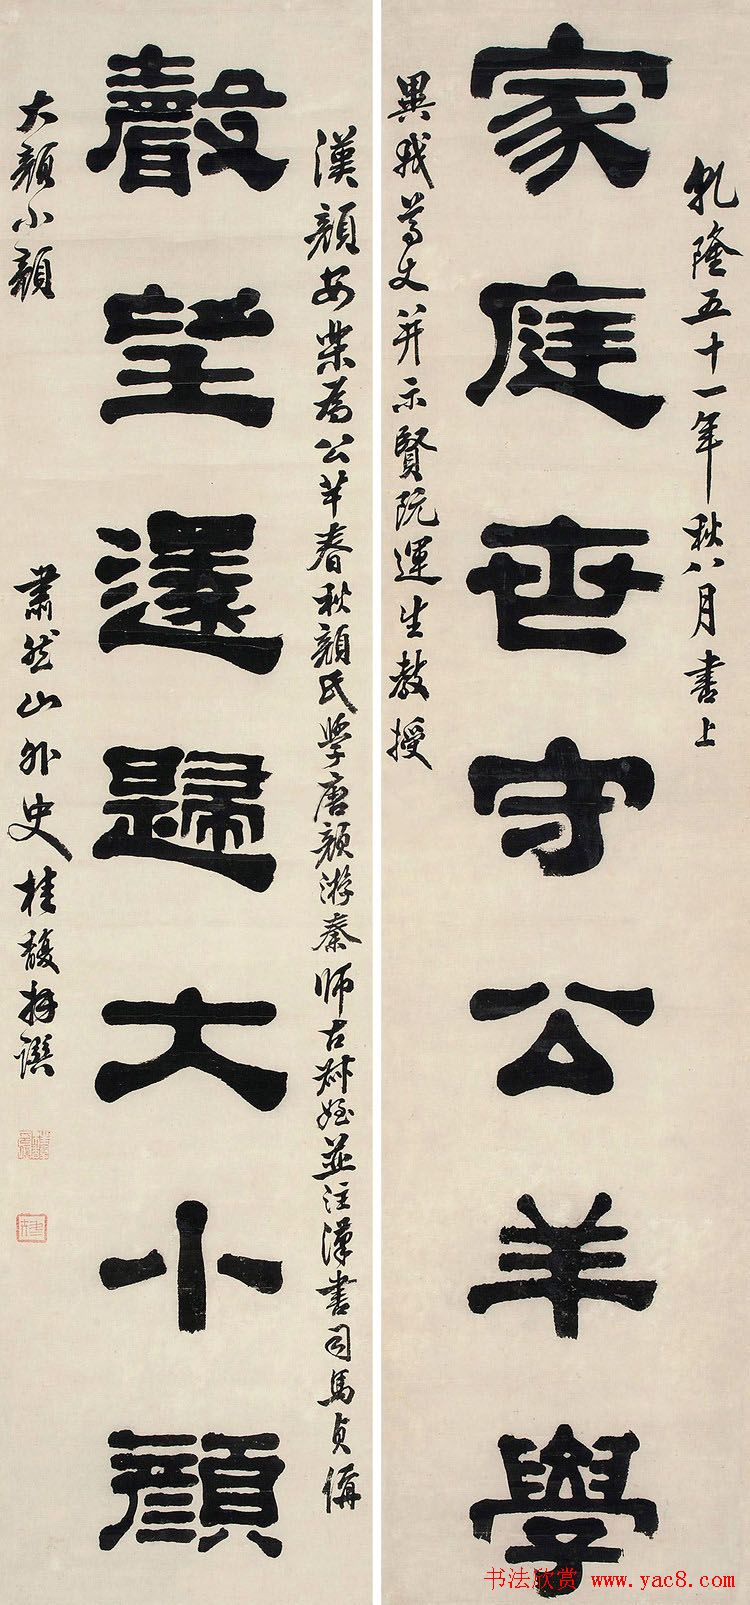 乾隆五十一年秋八月書上
家庭世守公羊學
異我尊丈并示賢阮運生教授
漢顏安樂為公羊春秋顏氏學唐顏游秦師古叔姪並注漢書司馬貞偁
聲望還歸大小顏
大顏小顏
肅然山外史桂馥拜譔
书法欣赏 www.yac8.com